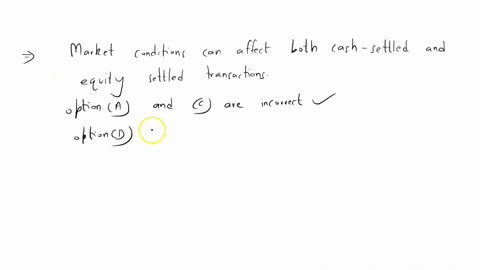 ⇒ Market conditions can affect both cash-settled and
equity settled transactions.
option (A) and (C) are incorrect ✓
option (D)